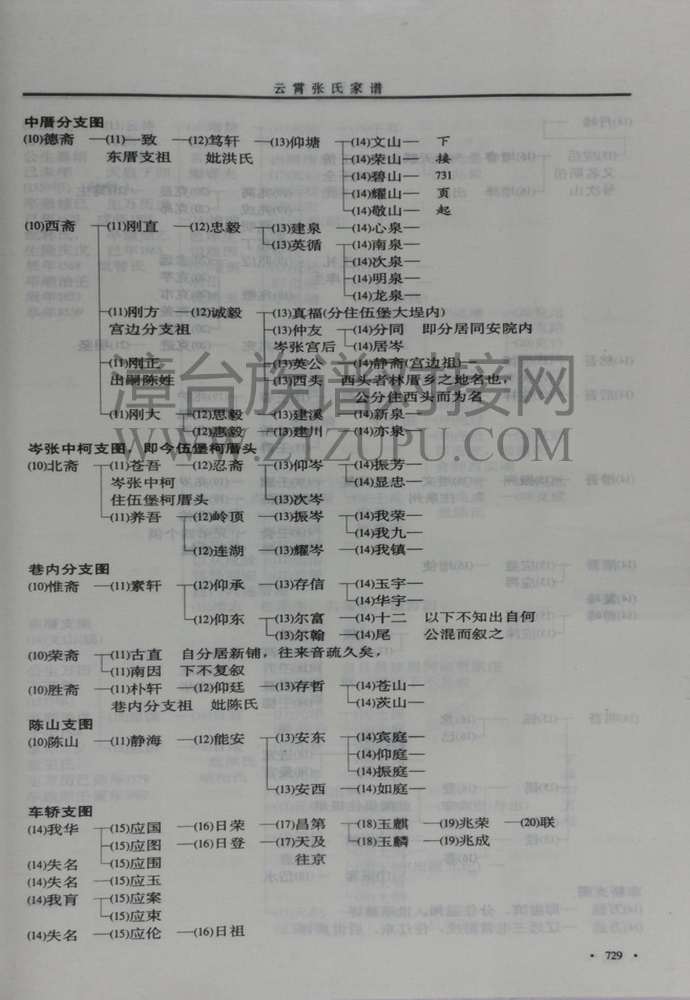 云霄张氏家谱
中厝分支图
(10)德斋 —(11)一致 —(12)笃轩 —(13)仰塘 —(14)文山— 下
东厝支祖 妣洪氏 (14)荣山— 接
(14)碧山— 731
(14)耀山— 页
(14)敬山— 起
(10)西斋 —(11)刚直 —(12)忠毅 —(13)建泉 —(14)心泉—
(13)英循 —(14)南泉—
(14)次泉—
(14)明泉—
(14)龙泉—
(11)刚方 —(12)诚毅 —(13)真福(分住伍堡大埕内)
宫边分支祖 (13)仲友 —(14)分同 即分居同安院内
岑张宫后 (14)居岑
(11)刚正 (13)英公 —(14)静斋(宫边祖)—
出嗣陈姓 (13)西头 西头者林厝乡之地名也，
公分住西头而为名
(11)刚大 —(12)思毅 —(13)建溪 —(14)新泉—
(12)惠毅 —(13)建川 —(14)亦泉—
漳台族谱对接网
WWW.ZTZUPU.COM
岑张中柯支图，即今伍堡柯厝头
(10)北斋 —(11)苍吾 —(12)忍斋 —(13)仰岑 —(14)振芳—
岑张中柯 (14)显忠—
住伍堡柯厝头 (13)次岑
(11)养吾 —(12)岭顶 —(13)振岑 —(14)我荣—
(14)我九—
(12)连湖 —(13)耀岑 —(14)我镇—
巷内分支图
(10)惟斋 —(11)素轩 —(12)仰承 —(13)存信 —(14)玉宇—
(14)华宇—
(12)仰东 —(13)尔富 —(14)十二 以下不知出自何
(13)尔翰 —(14)尾 公混而叙之
(10)荣斋 —(11)古直 自分居新铺，往来音疏久矣，
(11)南因 下不复叙
(10)胜斋 —(11)朴轩 —(12)仰廷 —(13)存哲 —(14)苍山—
巷内分支祖 妣陈氏 (14)茨山—
陈山支图
(10)陈山 —(11)静海 —(12)能安 —(13)安东 —(14)宾庭—
(14)仰庭—
(14)振庭—
(13)安西 —(14)如庭—
车轿支图
(14)我华 —(15)应国 —(16)日荣 —(17)昌第 —(18)玉麒 —(19)兆荣 —(20)联
(15)应图 —(16)日登 —(17)天及 —(18)玉麟 —(19)兆成
(14)失名 —(15)应围 往京
(14)失名 —(15)应玉
(14)我肓 —(15)应案
(15)应束
(14)失名 —(15)应伦 —(16)日祖
· 729 ·